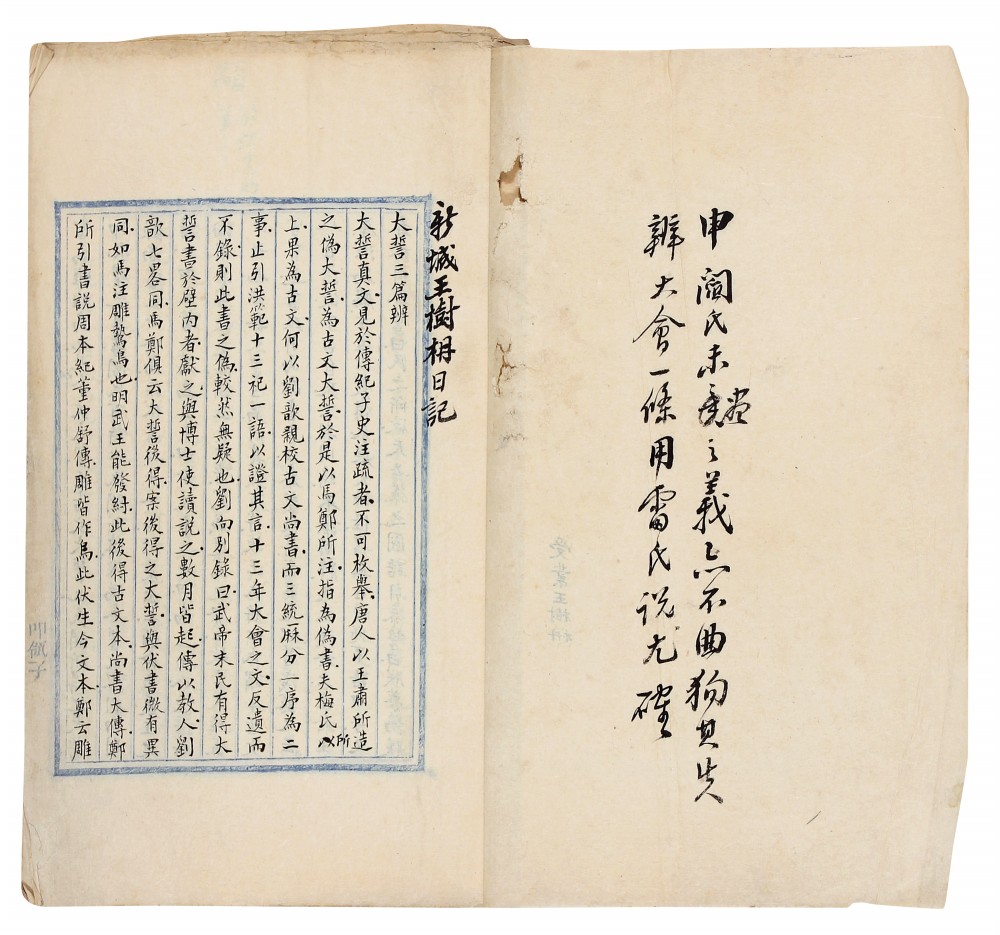 申閻氏未盡之義亦不曲狥其失
辨大會一條用雷氏说尤確
新城王樹枏日記
大誓三篇辨
大誓真文見於傳紀子史注疏者不可枚舉唐人以王肅所造
之偽大誓為古文大誓於是以馬鄭所注指為偽書夫梅氏所
上果為古文何以劉歆親校古文尚書而三統厤分一序為二
事止引洪範十三祀一語以證其言十三年大會之文反遺而
不錄則此書之偽較然無疑也劉向別錄曰武帝末民有得大
誓書於壁内者獻之與博士使讀說之數月皆起傳以教人劉
歆七畧同馬鄭俱云大誓後得案後得之大誓與伏書微有異
同如馬注雕鷙鳥也明武王能發紂此後得古文本尚書大傳鄭
所引書說周本紀董仲舒傳雕皆作烏此伏生今文本鄭云雕
受業王樹枏